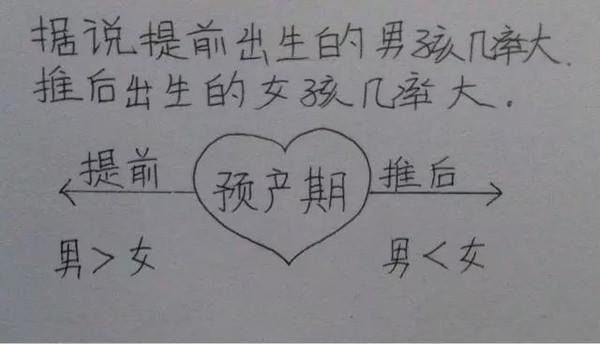 据说提前出生的男孩几率大.
推后出生的女孩几率大.
提前 预产期 推后
男>女 男<女